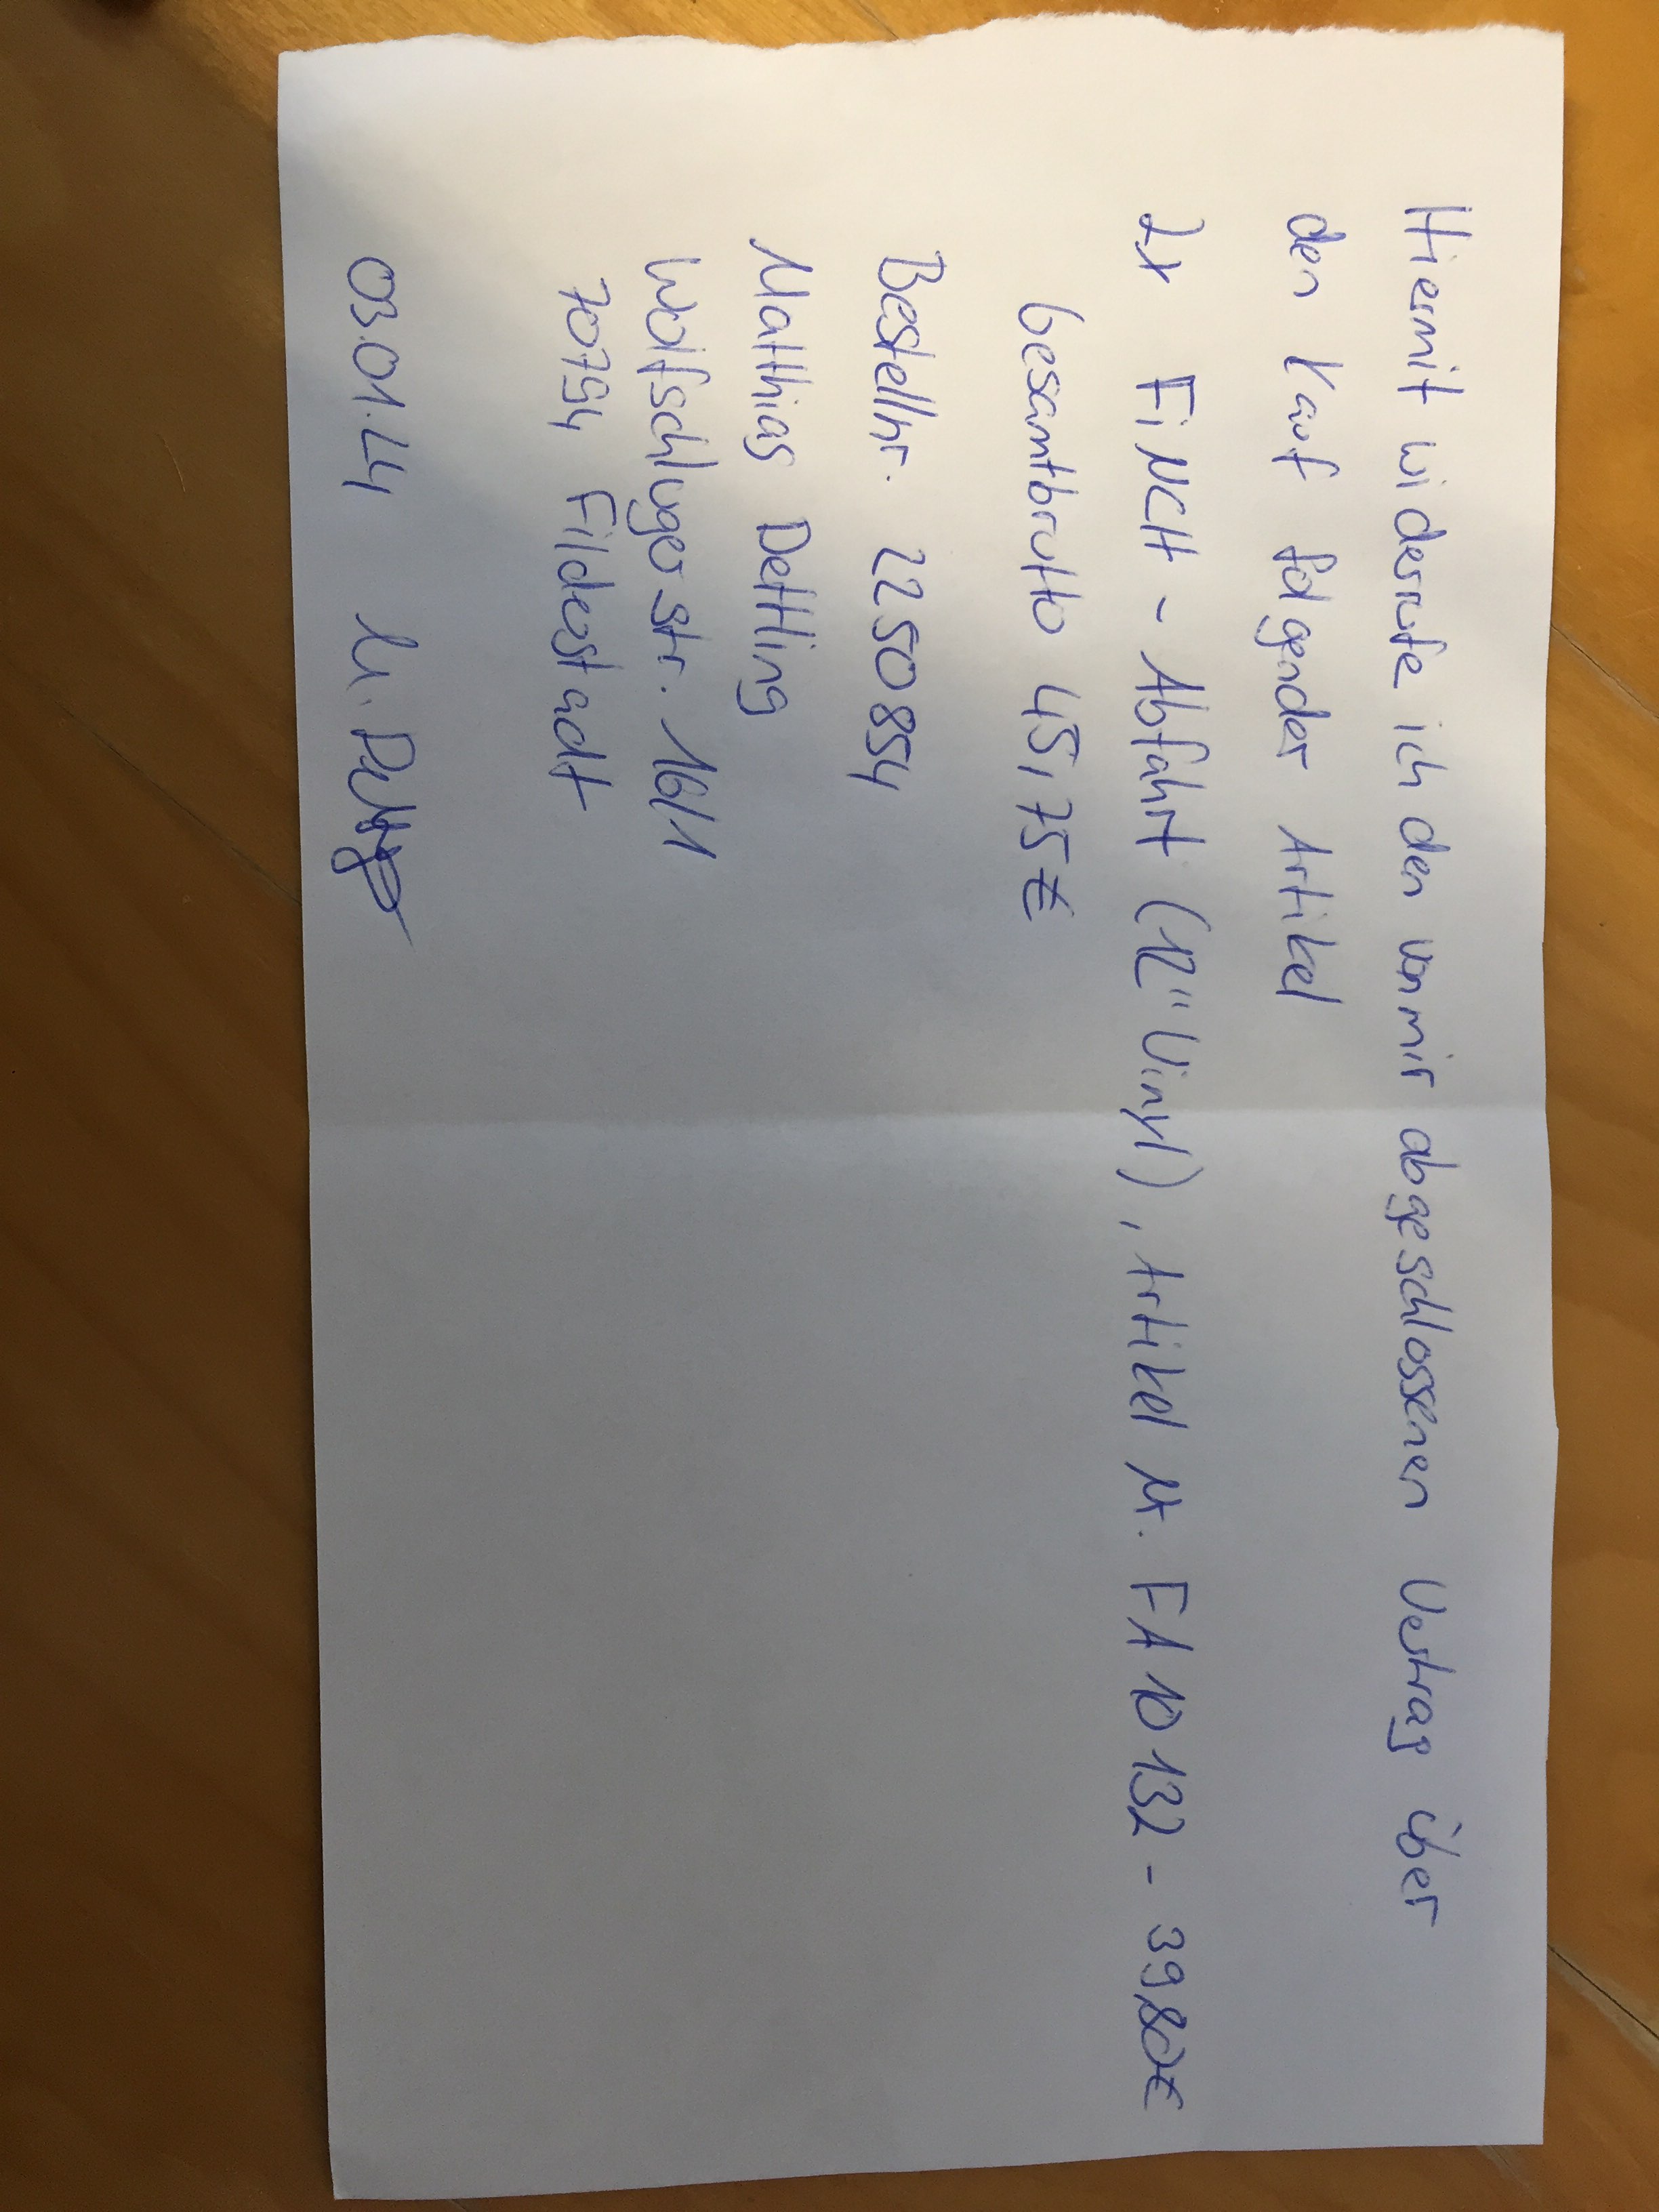 Hiermit widerrufe ich den von mir abgeschlossenen Vertrag über
den Kauf folgender Artikel
2x FiNCH - Abfahrt (12" Vinyl), Artikel Nr. FA10132 - 39,80€
Gesamtbrutto 45,75€
Bestellnr. 2250854
Matthias Dettling
Wolfschluger Str. 16/1
70794 Filderstadt
03.01.24 M. Dettling